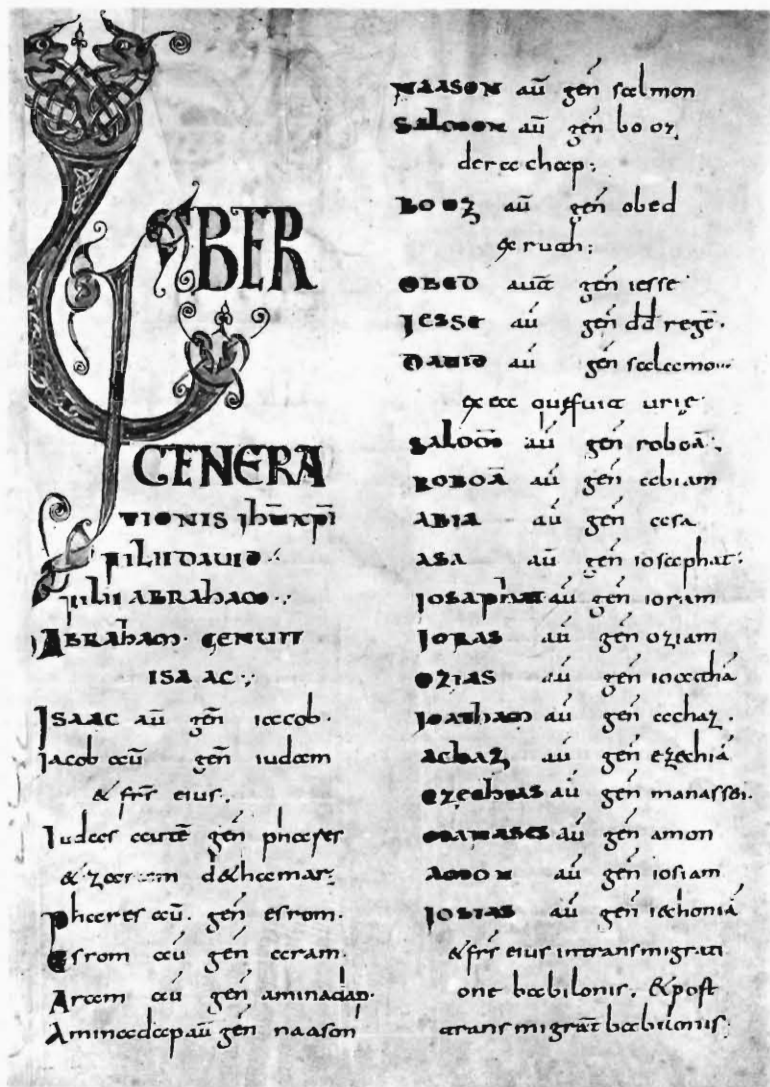 LIBER
GENERA
TIONIS ihū xpi
filii DAVID
filii ABRAham
ABRAham GENUIT
ISAAC
ISAAC aū gen̄ iacob.
Jacob aū gen̄ iudam
& fr̄s eius.
Iudas autē gen̄ phares
& zaram d&hamar
Phares aū gen̄ esrom.
Esrom aū gen̄ aram.
Aram aū gen̄ aminadap.
Aminadap aū gen̄ naason
NAASON aū gen̄ salmon
Salomon aū gen̄ booz
de rachap
BOOZ aū gen̄ obed
ex ruth
OBED aut̄ gen̄ iesse
JESSE aū gen̄ dd̄ regē.
DAUID aū gen̄
ex ea que fuit urie
SALOM̄ aū gen̄ roboā
ROBOĀ aū gen̄ abiam
ABIA aū gen̄ asa
ASA aū gen̄ iosaphat
JOSAphat aū gen̄ ioram
JORAS aū gen̄ oziam
OZIAS aū gen̄ ioathā
JOATHAM aū gen̄ achaz.
AChAZ aū gen̄ ezechiā
EZEChIAS aū gen̄
MANASES aū gen̄ amon
AMON aū gen̄ iosiam
JOSIAS aū gen̄ iechoniā
& fr̄s eius in transmigrati
one babilonis. & post
transmigrat̄ babilonis